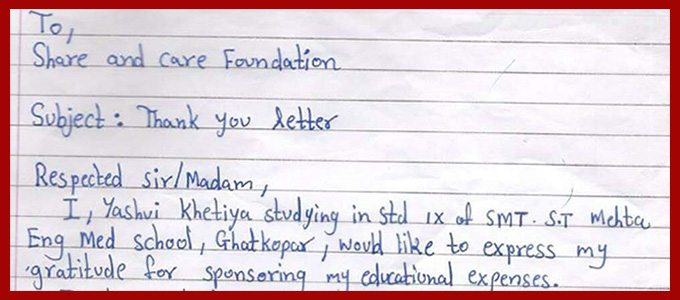 To,
Share and care Foundation
Subject : Thank you letter
Respected sir/Madam,
I, Yashvi Khetiya studying in Std IX of SMT. S.T Mehta
Eng Med school, Ghatkopar, would like to express my
gratitude for sponsering my educational expenses.